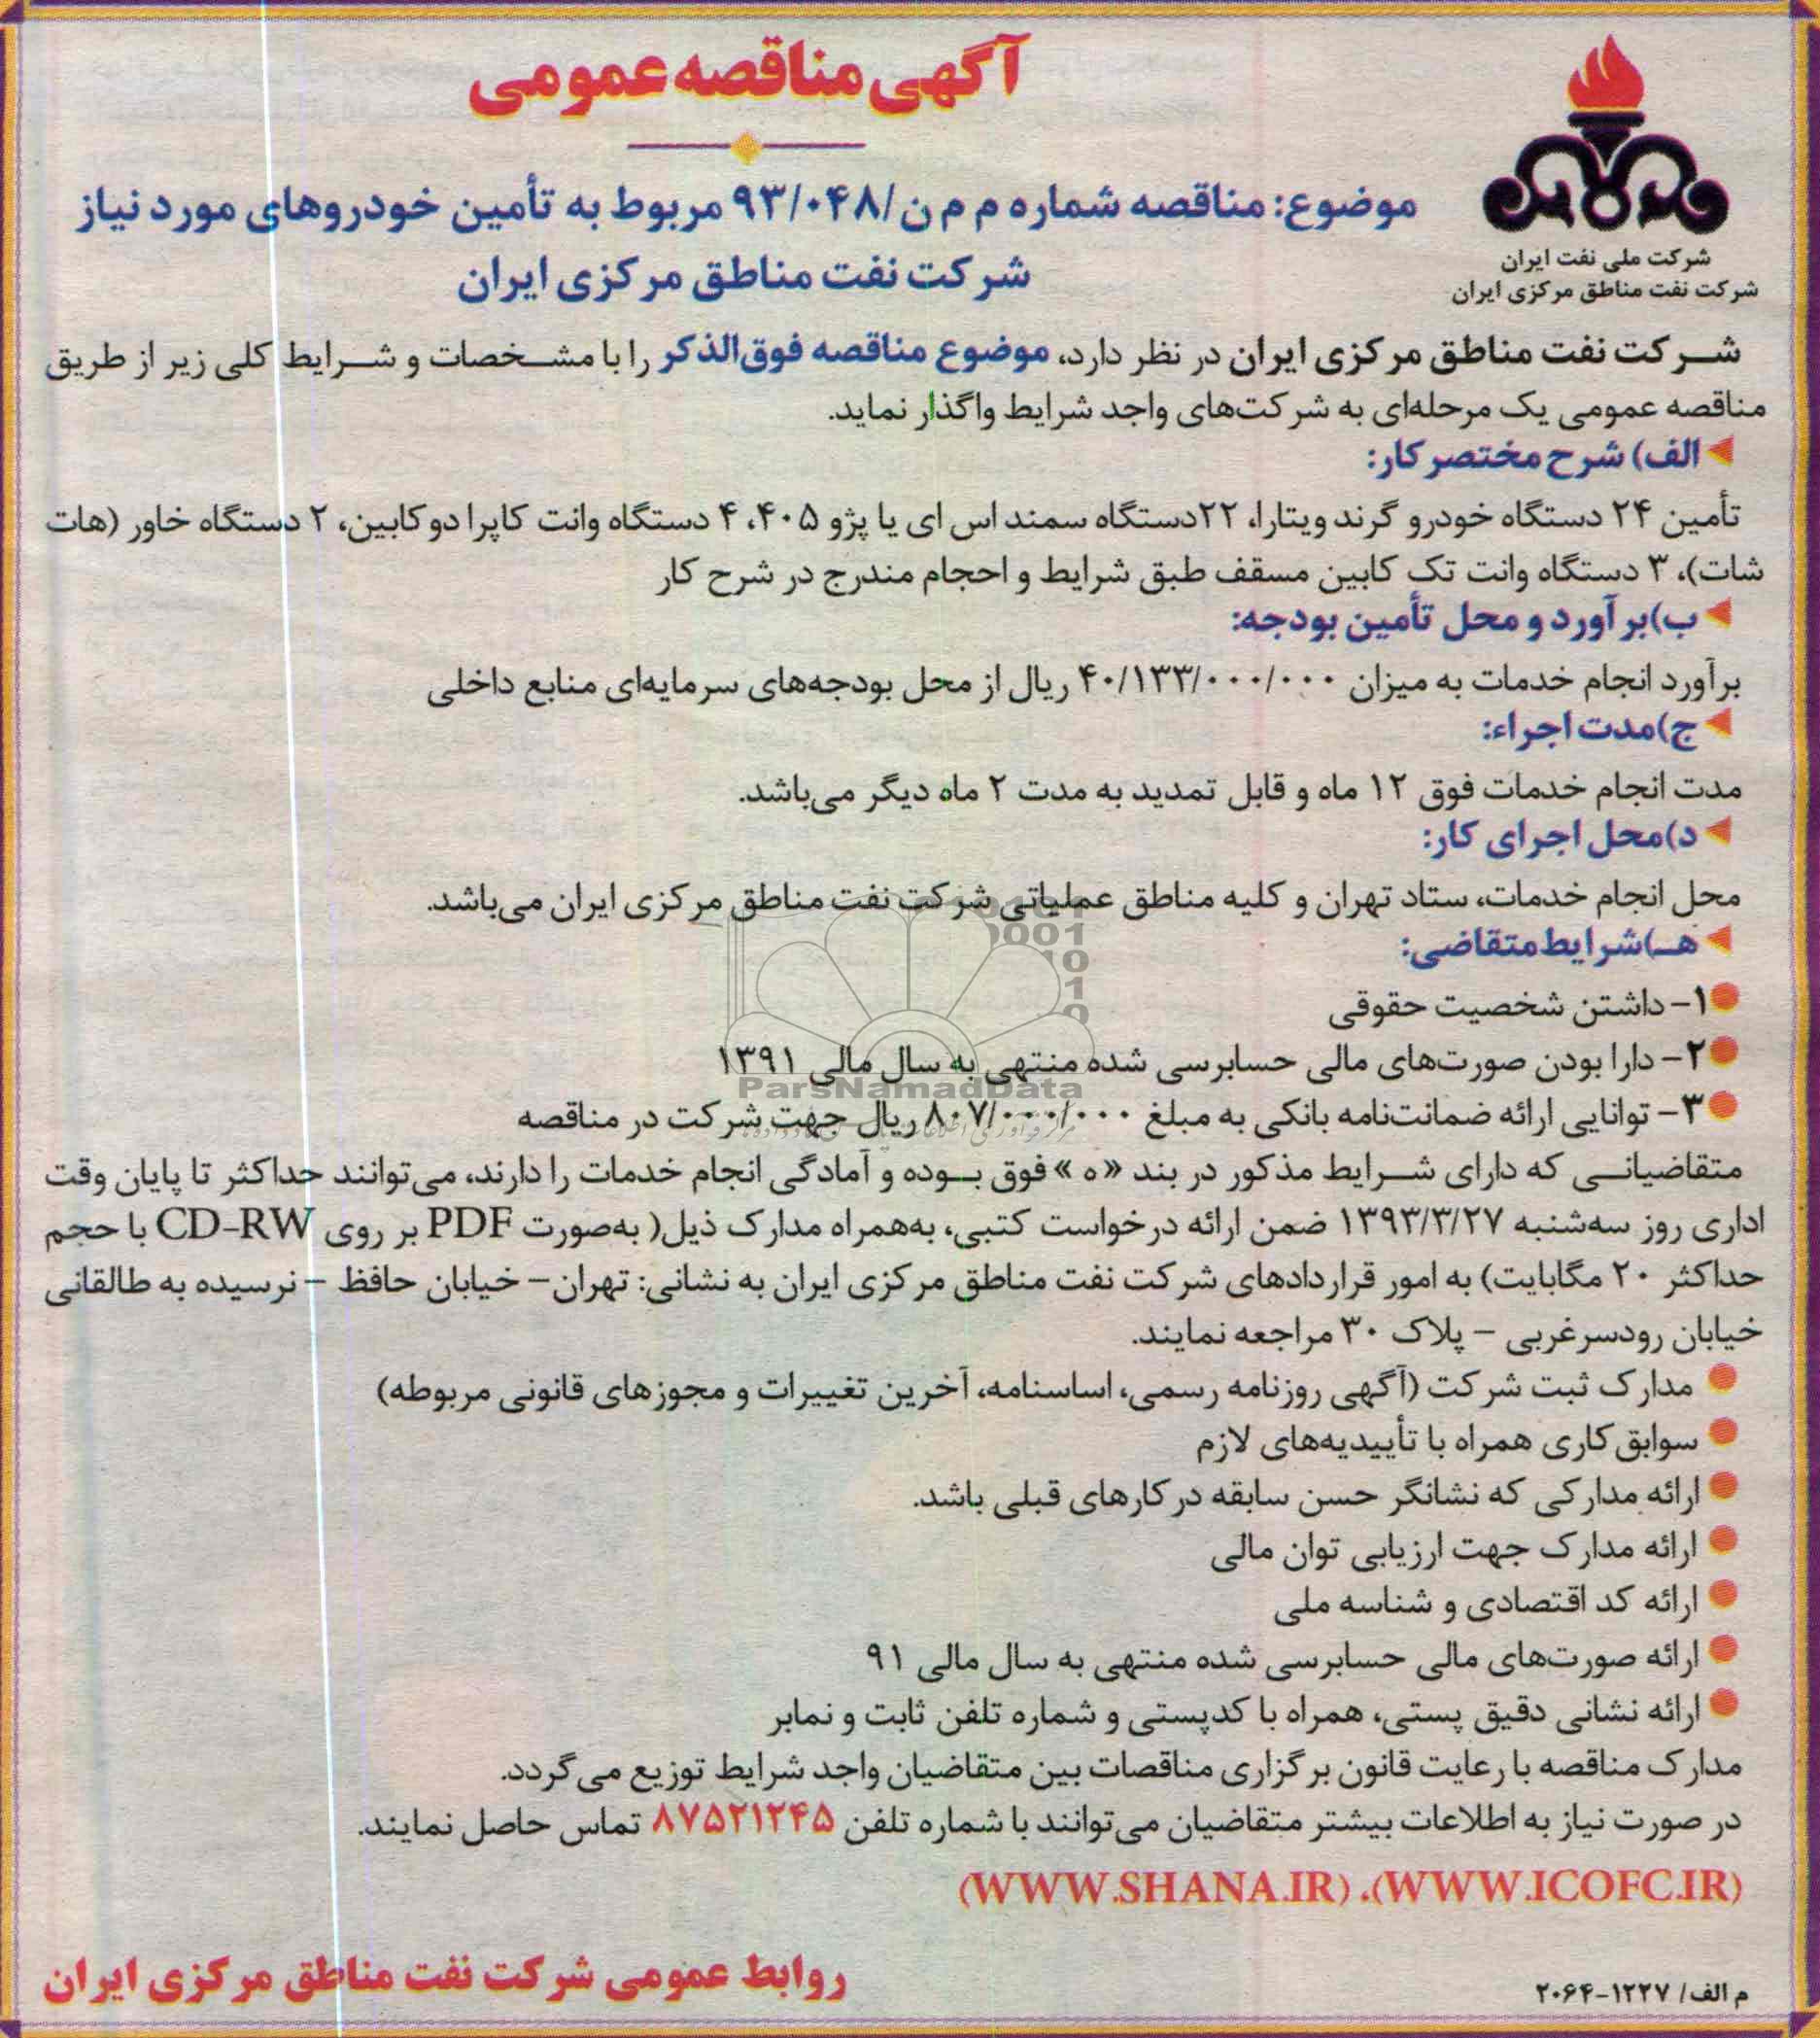 آگهی مناقصه عمومی
شرکت ملی نفت ایران
شرکت نفت مناطق مرکزی ایران
موضوع: مناقصه شماره م م ن/۹۳/۰۴۸ مربوط به تأمین خودروهای مورد نیاز
شرکت نفت مناطق مرکزی ایران
شرکت نفت مناطق مرکزی ایران در نظر دارد، موضوع مناقصه فوق‌الذکر را با مشخصات و شرایط کلی زیر از طریق
مناقصه عمومی یک مرحله‌ای به شرکت‌های واجد شرایط واگذار نماید.
الف) شرح مختصر کار:
تأمین ۲۴ دستگاه خودرو گرند ویتارا، ۲۲دستگاه سمند اس ای یا پژو ۴۰۵، ۴ دستگاه وانت کاپرا دو کابین، ۲ دستگاه خاور (هات
شات)، ۳ دستگاه وانت تک کابین مسقف طبق شرایط و احجام مندرج در شرح کار
ب)برآورد و محل تأمین بودجه:
برآورد انجام خدمات به میزان ۴۰/۱۳۳/۰۰۰/۰۰۰ ریال از محل بودجه‌های سرمایه‌ای منابع داخلی
ج)مدت اجراء:
مدت انجام خدمات فوق ۱۲ ماه و قابل تمدید به مدت ۲ ماه دیگر می‌باشد.
د)محل اجرای کار:
محل انجام خدمات، ستاد تهران و کلیه مناطق عملیاتی شرکت نفت مناطق مرکزی ایران می‌باشد.
هـ)شرایط متقاضی:
۱- داشتن شخصیت حقوقی
۲- دارا بودن صورت‌های مالی حسابرسی شده منتهی به سال مالی ۱۳۹۱
ParsNamadData
۳- توانایی ارائه ضمانت‌نامه بانکی به مبلغ ۸۰۷/۰۰۰/۰۰۰ ریال جهت شرکت در مناقصه
متقاضیانی که دارای شرایط مذکور در بند «ه» فوق بوده و آمادگی انجام خدمات را دارند، می‌توانند حداکثر تا پایان وقت
اداری روز سه‌شنبه ۱۳۹۳/۳/۲۷ ضمن ارائه درخواست کتبی، به‌همراه مدارک ذیل( به‌صورت PDF بر روی CD-RW با حجم
حداکثر ۲۰ مگابایت) به امور قراردادهای شرکت نفت مناطق مرکزی ایران به نشانی: تهران- خیابان حافظ - نرسیده به طالقانی
خیابان رودسرغربی - پلاک ۳۰ مراجعه نمایند.
مدارک ثبت شرکت (آگهی روزنامه رسمی، اساسنامه، آخرین تغییرات و مجوزهای قانونی مربوطه)
سوابق کاری همراه با تأییدیه‌های لازم
ارائه مدارکی که نشانگر حسن سابقه در کارهای قبلی باشد.
ارائه مدارک جهت ارزیابی توان مالی
ارائه کد اقتصادی و شناسه ملی
ارائه صورت‌های مالی حسابرسی شده منتهی به سال مالی ۹۱
ارائه نشانی دقیق پستی، همراه با کدپستی و شماره تلفن ثابت و نمابر
مدارک مناقصه با رعایت قانون برگزاری مناقصات بین متقاضیان واجد شرایط توزیع می‌گردد.
در صورت نیاز به اطلاعات بیشتر متقاضیان می‌توانند با شماره تلفن ۸۷۵۲۱۲۴۵ تماس حاصل نمایند.
(WWW.SHANA.IR) ،(WWW.ICOFC.IR)
روابط عمومی شرکت نفت مناطق مرکزی ایران
م الف/ ۱۲۲۷-۲۰۶۴